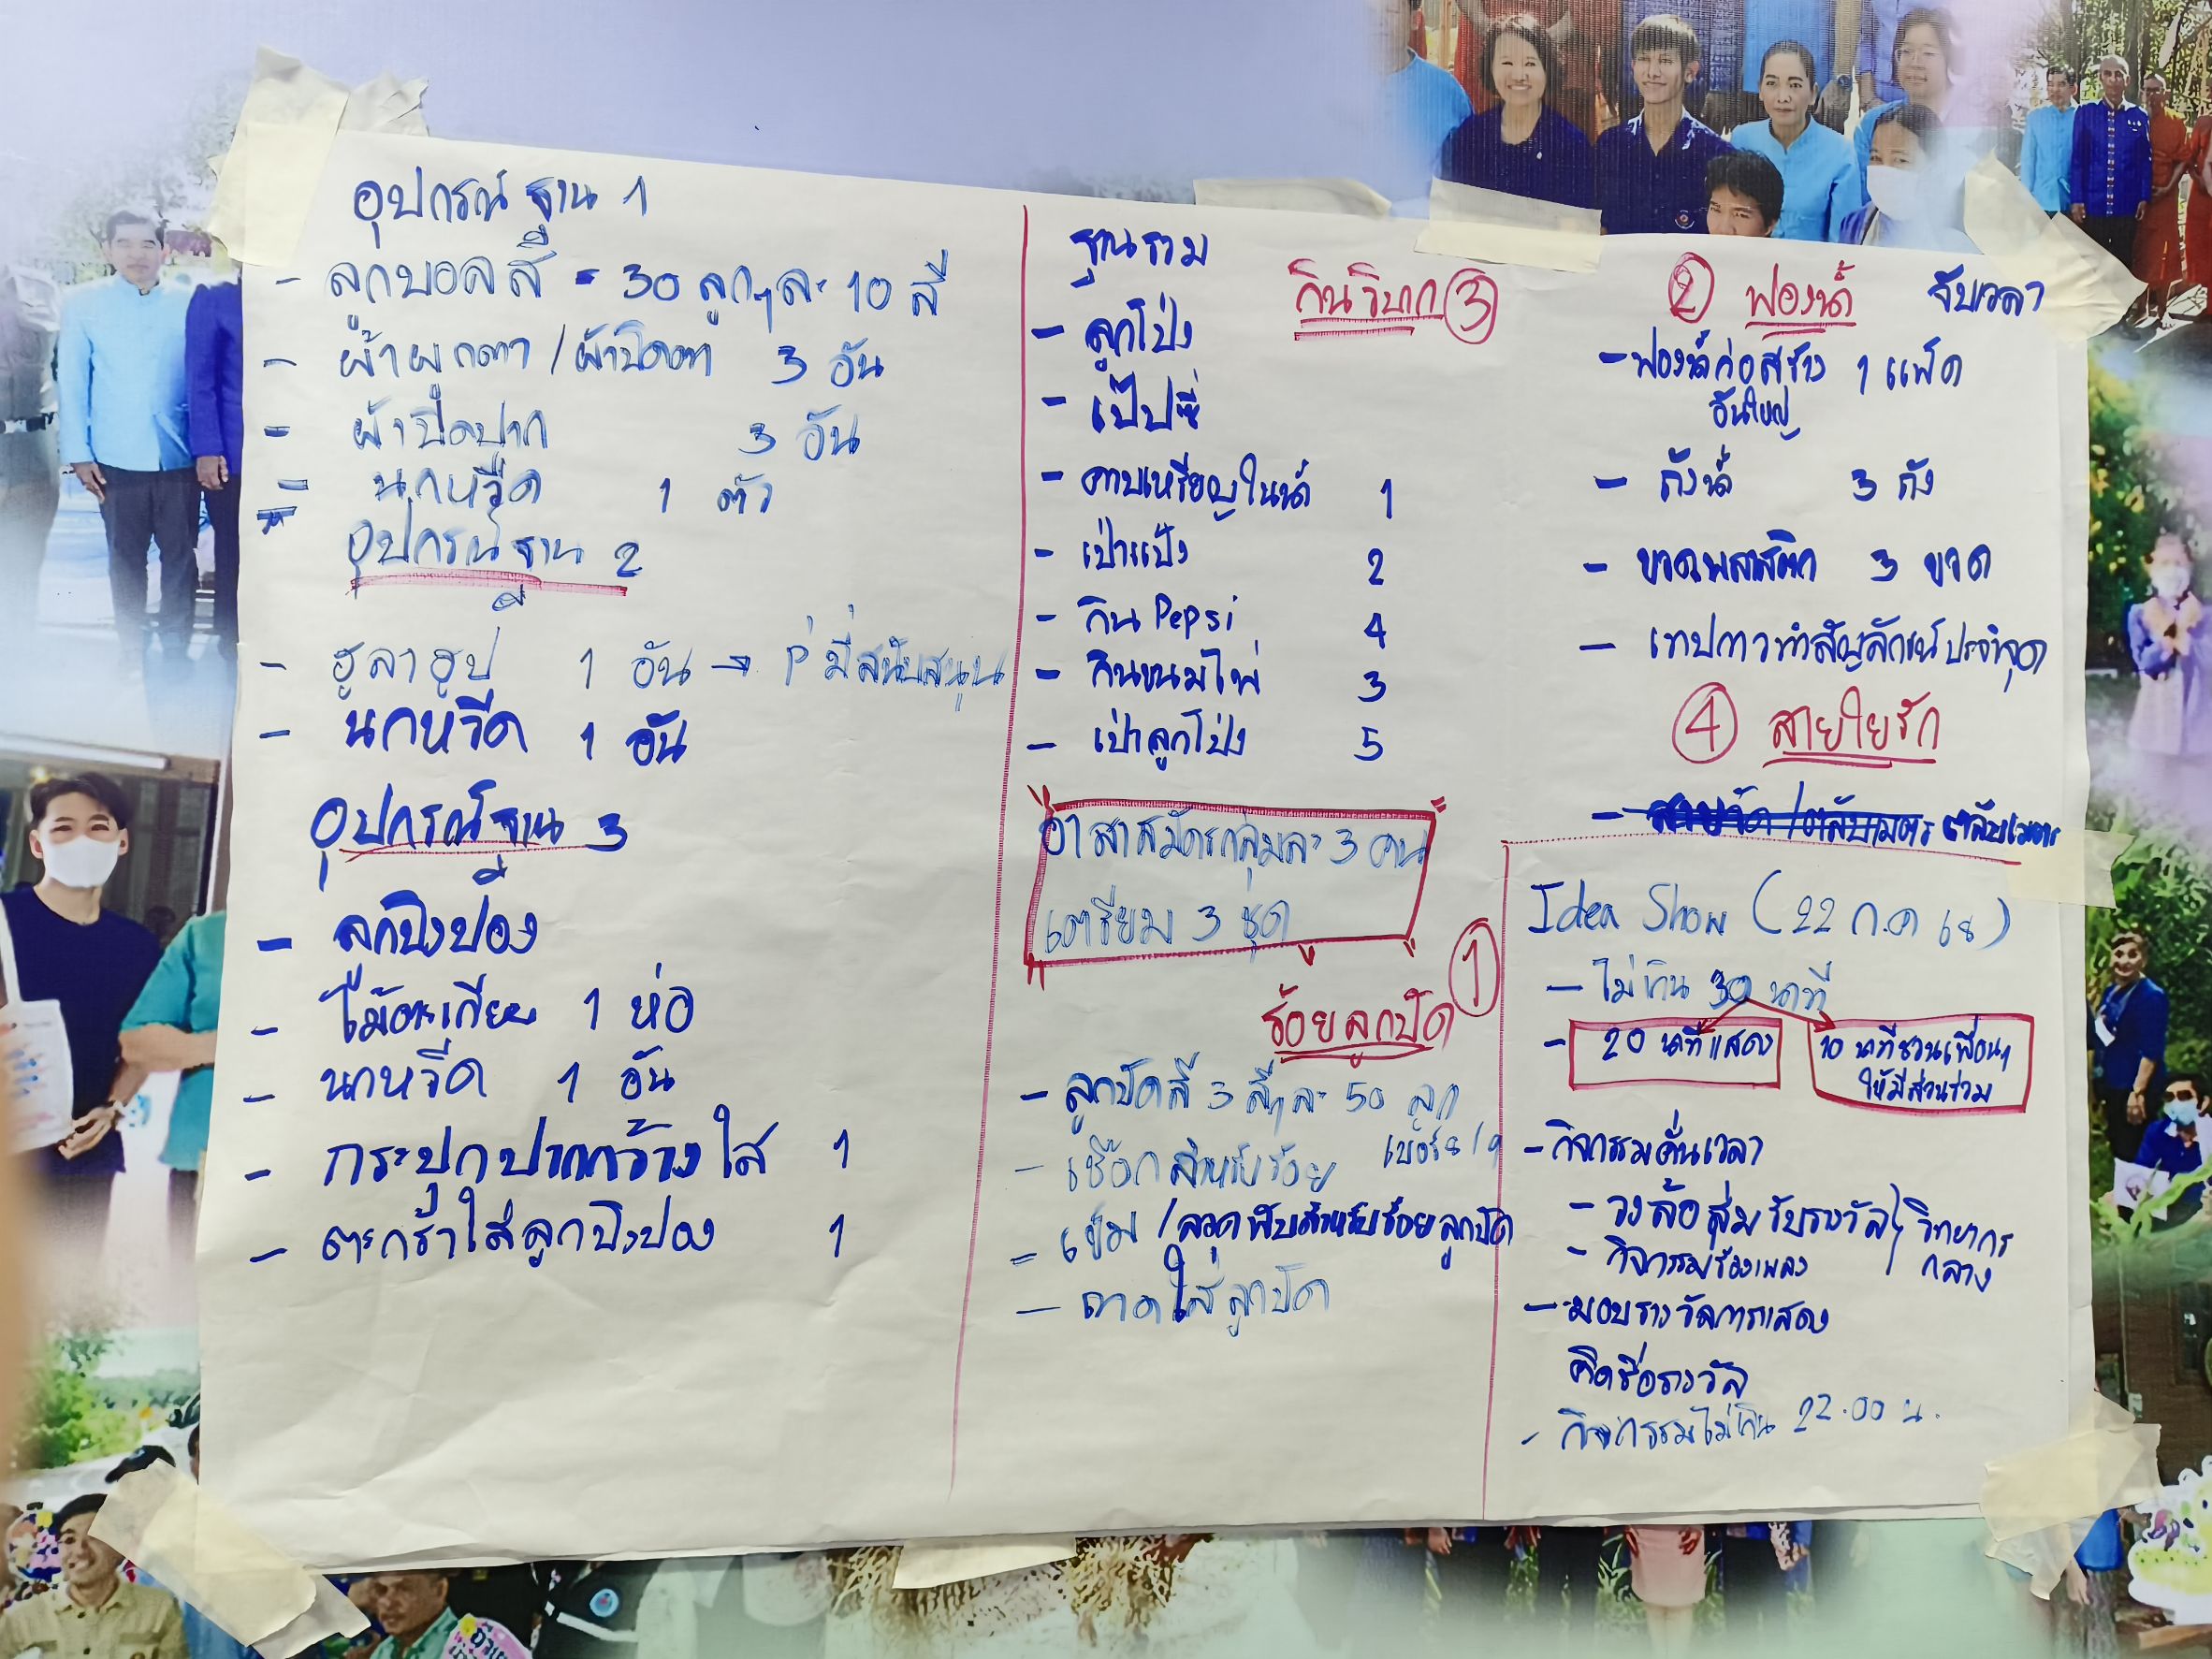 อุปกรณ์ ฐาน 1
- ลูกบอลสี - 30 ลูกๆละ 10 สี
- ผ้าผูกตา / ผ้าปิดตา 3 อัน
- ผ้าปิดปาก 3 อัน
- นกหวีด 1 ตัว
อุปกรณ์ ฐาน 2
- ฮูลาฮูป 1 อัน → P'มี่สนับสนุน
- นกหวีด 1 อัน
อุปกรณ์ ฐาน 3
- ลูกปิงปอง
- ไม้ตะเกียบ 1 ห่อ
- นกหวีด 1 อัน
- กระปุกปากกว้างใส 1
- ตะกร้าใส่ลูกปิงปอง 1
ฐานรวม
กินวิบาก ③
- ลูกโป่ง
- เป๊ปซี่
- คาบเหรียญในน้ำ 1
- เป่าแป้ง 2
- กิน Pepsi 4
- กินขนมโพ่ 3
- เป่าลูกโป่ง 5
อาสาสมัครกลุ่มละ 3 คน
เตรียม 3 ชุด
ร้อยลูกปัด ①
- ลูกปัดสี 3 สีๆละ 50 ลูก
- เชือกสำหรับร้อย เบอร์ 8/9
- เข็ม / ลวดพับสำหรับร้อยลูกปัด
- ถาดใส่ลูกปัด
② ฟองน้ำ จับเวลา
- ฟองน้ำก่อสร้าง 1 แพ็ค
อันใหญ่
- ถังน้ำ 3 ถัง
- ขวดพลาสติก 3 ขวด
- เทปกาวทำสัญลักษณ์ประจำจุด
④ สายใยรัก
- ตลับเมตร
Idea Show (22 ก.ค 68)
- ไม่เกิน 30 นาที
- 20 นาทีแสดง
10 นาทีชวนเพื่อนๆ
ให้มีส่วนร่วม
- กิจกรรมคั่นเวลา
- วงล้อสุ่มรับรางวัล
- กิจกรรมร้องเพลง
วิทยากร
กลาง
- มอบรางวัลการแสดง
คิดชื่อรางวัล
- กิจกรรมไม่เกิน 22.00 น.